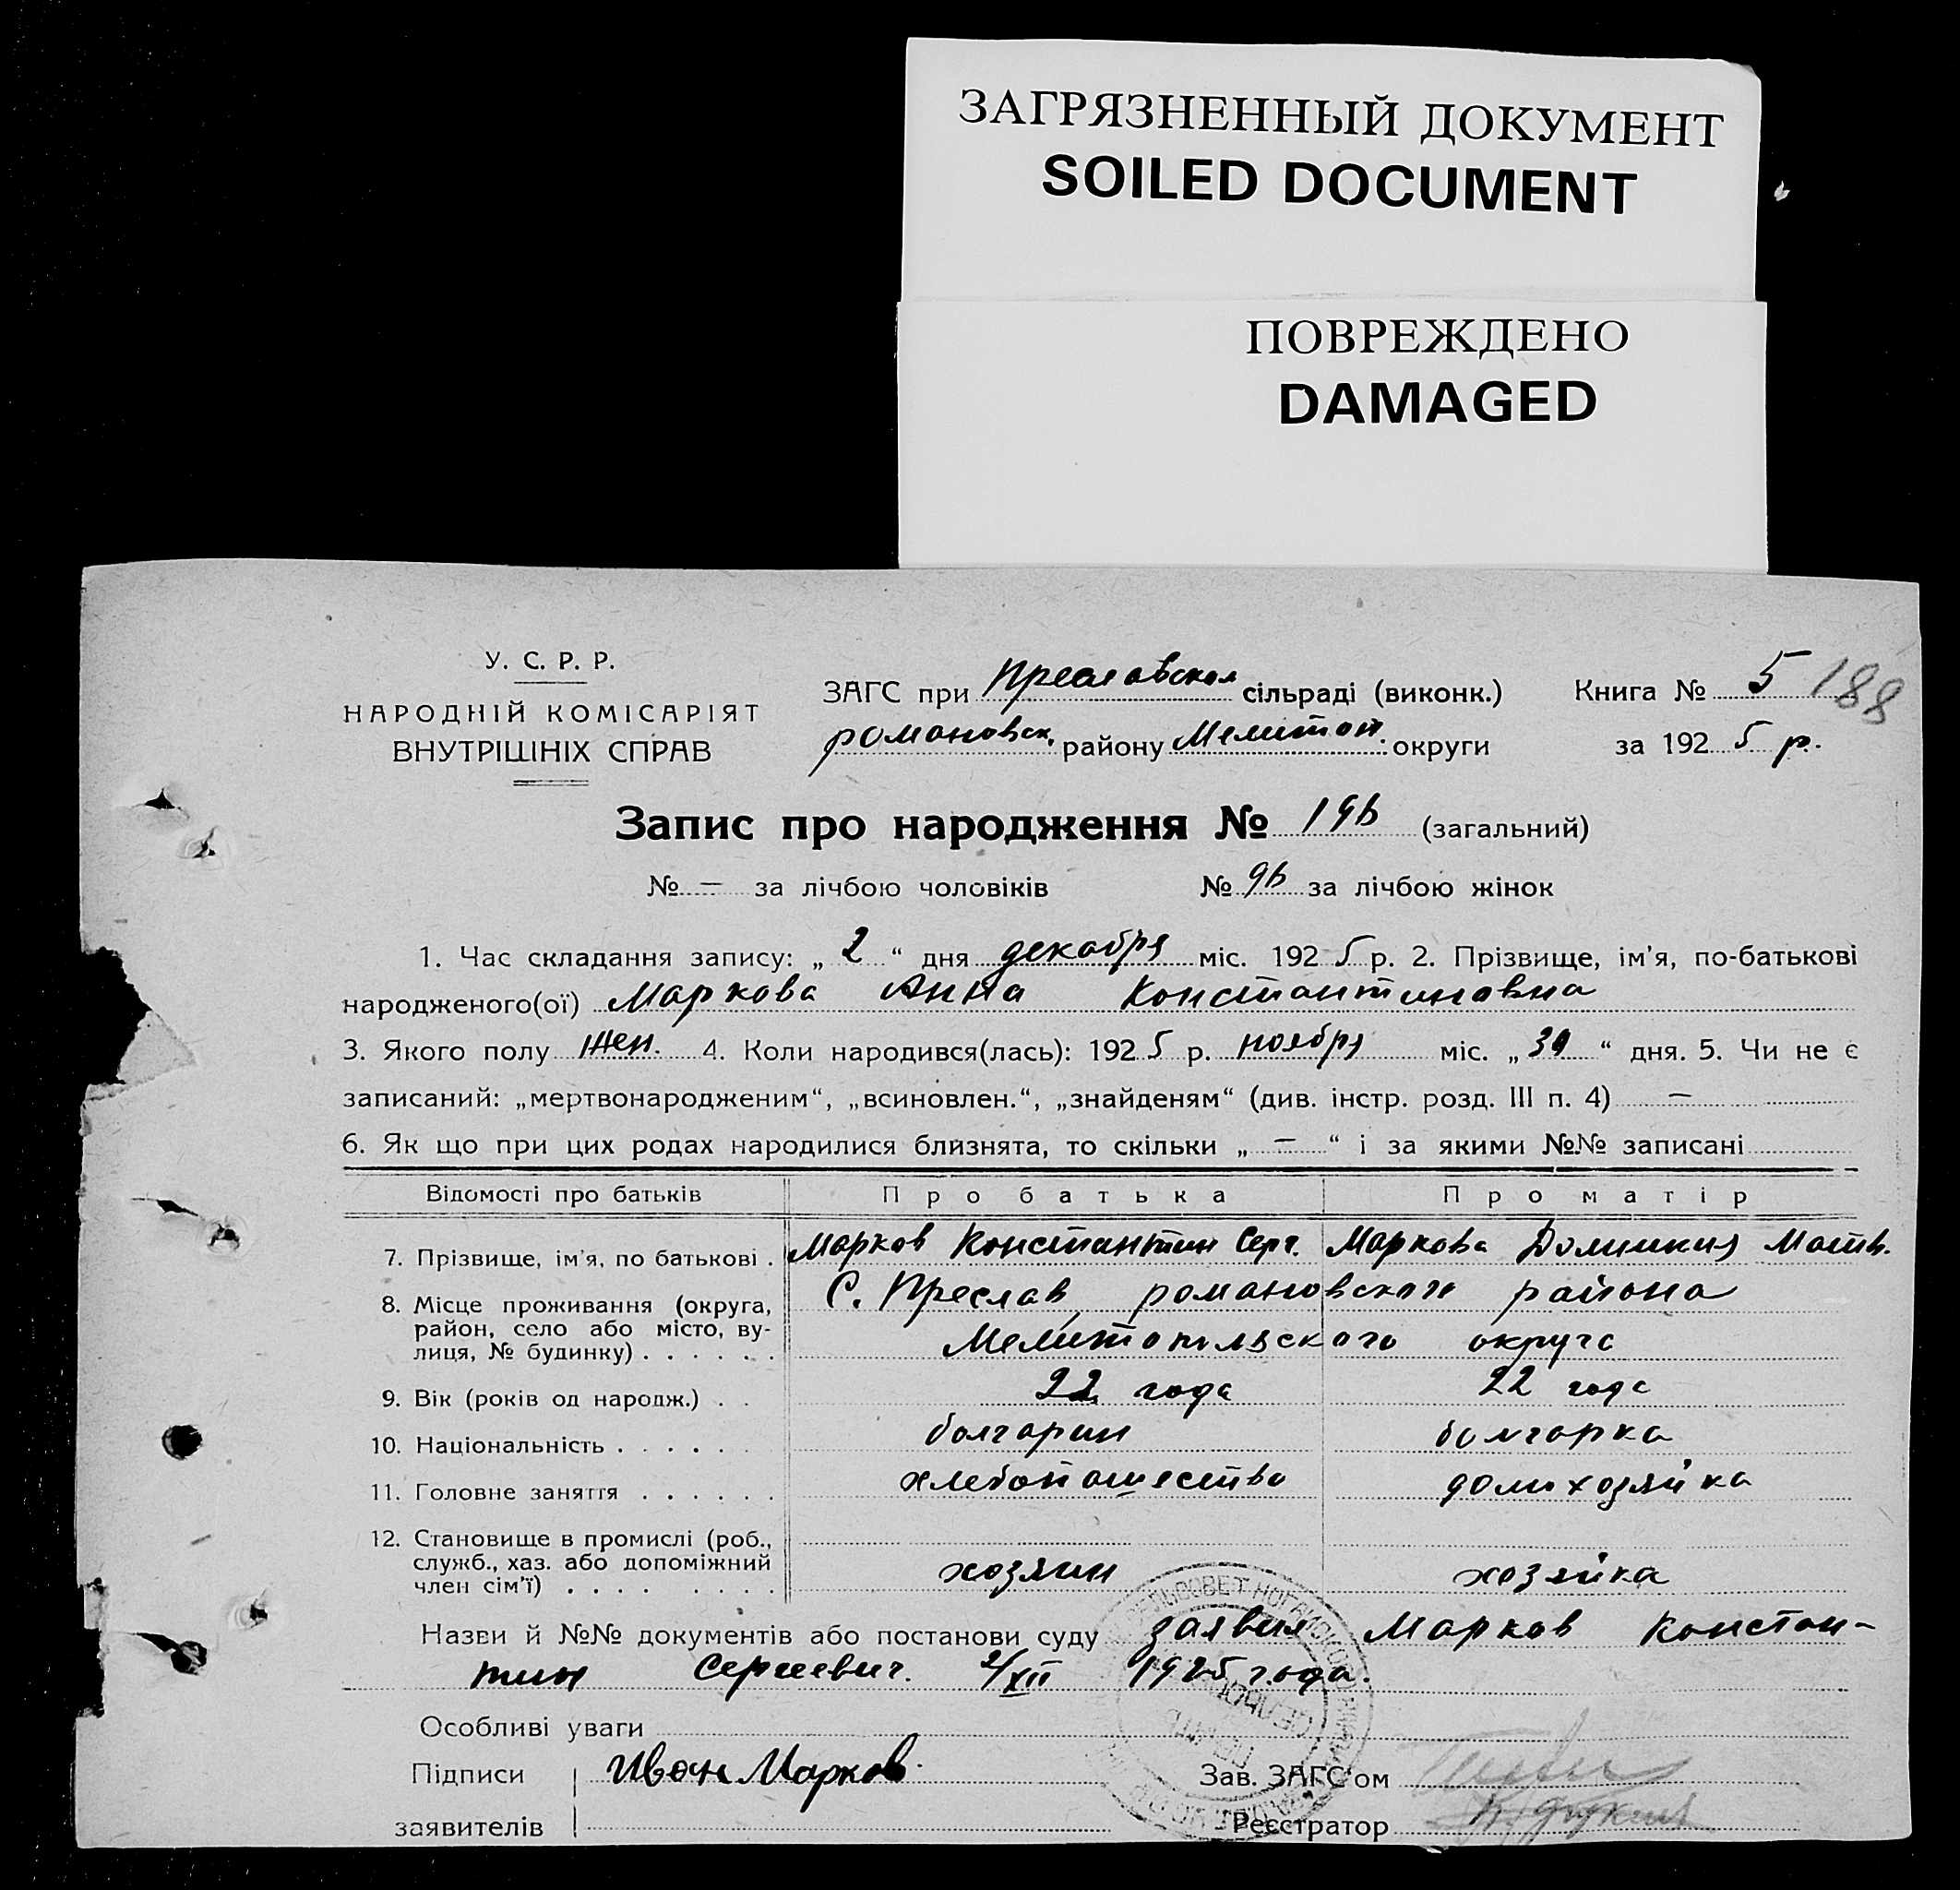 ЗАГРЯЗНЕННЫЙ ДОКУМЕНТ
SOILED DOCUMENT
ПОВРЕЖДЕНО
DAMAGED
У. С. Р. Р.
НАРОДНІЙ КОМІСАРІЯТ
ВНУТРІШНІХ СПРАВ
ЗАГС при Преславском сільраді (виконк.) Книга № 5 188
романовск. району Мелитоп. округи за 1925 р.
Запис про народження № 196 (загальний)
№ — за лічбою чоловіків № 96 за лічбою жінок
1. Час складання запису: „ 2 “ дня декабря міс. 1925 р. 2. Прізвище, ім'я, по-батькові
народженого(ої) Маркова Анна Константиновна
3. Якого полу жен. 4. Коли народився(лась): 1925 р. ноября міс. „30“ дня. 5. Чи не є
записаний: „мертвонародженим“, „всиновлен.“, „знайденям“ (див. інстр. розд. III п. 4) —
6. Як що при цих родах народилися близнята, то скільки „ — “ і за якими №№ записані
Відомості про батьків Про батька Про матір
7. Прізвище, ім'я, по батькові . Марков Константин Серг. Маркова Домникия Матв.
8. Місце проживання (округа, район, село або місто, вулиця, № будинку) . . . . . . С. Преслав, романовского района
Мелитопольского округа
9. Вік (років од народж.) . . 22 года 22 года
10. Національність . . . . . болгарин болгарка
11. Головне заняття . . . . . . хлебопашество домохозяйка
12. Становище в промислі (роб., служб., хаз. або допоміжний член сім'ї) . . . . . . . . хозяин хозяйка
Назви й №№ документів або постанови суду заявил Марков Констан-
тин Сергеевич. 2/XII 1925 года.
Особливі уваги
Підписи Иван Марков
Зав. ЗАГС'ом
заявителів
Реєстратор